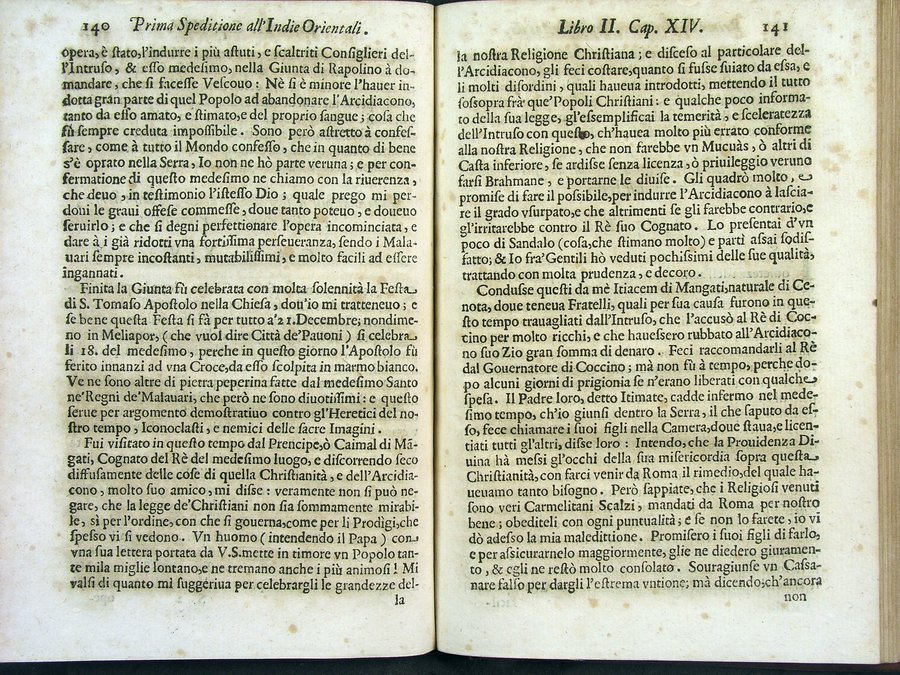 140 Prima Speditione all'Indie Orientali.
opera, è ſtato, l'indurre i più aſtuti, e ſcaltriti Conſiglieri del-
l'Intruſo, & eſſo medeſimo, nella Giunta di Rapolino à do-
mandare, che ſi faceſſe Veſcouo: Nè ſi è minore l'hauer in-
dotta gran parte di quel Popolo ad abandonare l'Arcidiacono,
tanto da eſſo amato, e ſtimato, e del proprio ſangue; coſa che
fù ſempre creduta impoſſibile. Sono però aſtretto à confeſ-
ſare, come à tutto il Mondo confeſſo, che in quanto di bene
s'è oprato nella Serra, Io non ne hò parte veruna; e per con-
fermatione di queſto medeſimo ne chiamo con la riuerenza,
che deuo, in teſtimonio l'iſteſſo Dio; quale prego mi per-
doni le graui offeſe commeſſe, doue tanto poteuo, e doueuo
ſeruirlo; e che ſi degni perfettionare l'opera incominciata, e
dare à i già ridotti vna fortiſſima perſeueranza, ſendo i Mala-
uari ſempre incoſtanti, mutabiliſſimi, e molto facili ad eſſere
ingannati.
Finita la Giunta fù celebrata con molta ſolennità la Feſta
di S. Tomaſo Apoſtolo nella Chieſa, dou'io mi tratteneuo; e
ſe bene queſta Feſta ſi fà per tutto a'21. Decembre; nondime-
no in Meliapor, (che vuol dire Città de'Pauoni) ſi celebra
li 18. del medeſimo, perche in queſto giorno l'Apoſtolo fù
ferito innanzi ad vna Croce, da eſſo ſcolpita in marmo bianco.
Ve ne ſono altre di pietra peperina fatte dal medeſimo Santo
ne'Regni de'Malauari, che però ne ſono diuotiſſimi: e queſto
ſerue per argomento demoſtratiuo contro gl'Heretici del no-
ſtro tempo, Iconoclaſti, e nemici delle ſacre Imagini.
Fui viſitato in queſto tempo dal Prencipe, ò Caimal di Mã-
gati, Cognato del Rè del medeſimo luogo, e diſcorrendo ſeco
diffuſamente delle coſe di quella Chriſtianità, e dell'Arcidia-
cono, molto ſuo amico, mi diſse: veramente non ſi può ne-
gare, che la legge de'Chriſtiani non ſia ſommamente mirabi-
le, sì per l'ordine, con che ſi gouerna, come per li Prodigi, che
ſpeſſo vi ſi vedono. Vn huomo (intendendo il Papa) con
vna ſua lettera portata da V.S. mette in timore vn Popolo tan-
te mila miglie lontano, e ne tremano anche i più animoſi! Mi
valſi di quanto mi ſuggeriua per celebrargli le grandezze del-
la
Libro II. Cap. XIV. 141
la noſtra Religione Chriſtiana; e diſceſo al particolare del-
l'Arcidiacono, gli feci coſtare, quanto ſi fuſſe ſuiato da eſsa, e
li molti diſordini, quali haueua introdotti, mettendo il tutto
ſoſsopra frà que'Popoli Chriſtiani: e qualche poco informa-
to della ſua legge, gl'eſsemplificai la temerità, e ſceleratezza
dell'Intruſo con queſto, ch'hauea molto più errato conforme
alla noſtra Religione, che non farebbe vn Mucuàs, ò altri di
Caſta inferiore, ſe ardiſse ſenza licenza, ò priuileggio veruno
farſi Brahmane, e portarne le diuiſe. Gli quadrò molto, e
promiſe di fare il poſſibile, per indurre l'Arcidiacono à laſcia-
re il grado vſurpato, e che altrimenti ſe gli farebbe contrario, e
gl'irritarebbe contro il Rè ſuo Cognato. Lo preſentai d'vn
poco di Sandalo (coſa, che ſtimano molto) e partì aſsai ſodiſ-
fatto; & Io fra'Gentili hò veduti pochiſſimi delle ſue qualità,
trattando con molta prudenza, e decoro.
Conduſse queſti da mè Itiacem di Mangati, naturale di Ce-
nota, doue teneua Fratelli, quali per ſua cauſa furono in que-
ſto tempo trauagliati dall'Intruſo, che l'accusò al Rè di Coc-
cino per molto ricchi, e che haueſsero rubbato all'Arcidiaco-
no ſuo Zio gran ſomma di denaro. Feci raccomandarli al Rè
dal Gouernatore di Coccino; mà non fù à tempo, perche do-
po alcuni giorni di prigionia ſe n'erano liberati con qualche
ſpeſa. Il Padre loro, detto Itimate, cadde infermo nel mede-
ſimo tempo, ch'io giunſi dentro la Serra, il che ſaputo da eſ-
ſo, fece chiamare i ſuoi figli nella Camera, doue ſtaua, e licen-
tiati tutti gl'altri, diſse loro: Intendo, che la Prouidenza Di-
uina hà meſſi gl'occhi della ſua miſericordia ſopra queſta
Chriſtianità, con farci venir da Roma il rimedio, del quale ha-
ueuamo tanto biſogno. Però ſappiate, che i Religioſi venuti
ſono veri Carmelitani Scalzi, mandati da Roma per noſtro
bene; obediteli con ogni puntualità; e ſe non lo farete, io vi
dò adeſso la mia maledittione. Promiſero i ſuoi figli di farlo,
e per aſſicurarnelo maggiormente, glie ne diedero giuramen-
to, & egli ne reſtò molto conſolato. Souragiunſe vn Caſſa-
nare falſo per dargli l'eſtrema vntione; mà dicendo, ch'ancora
non